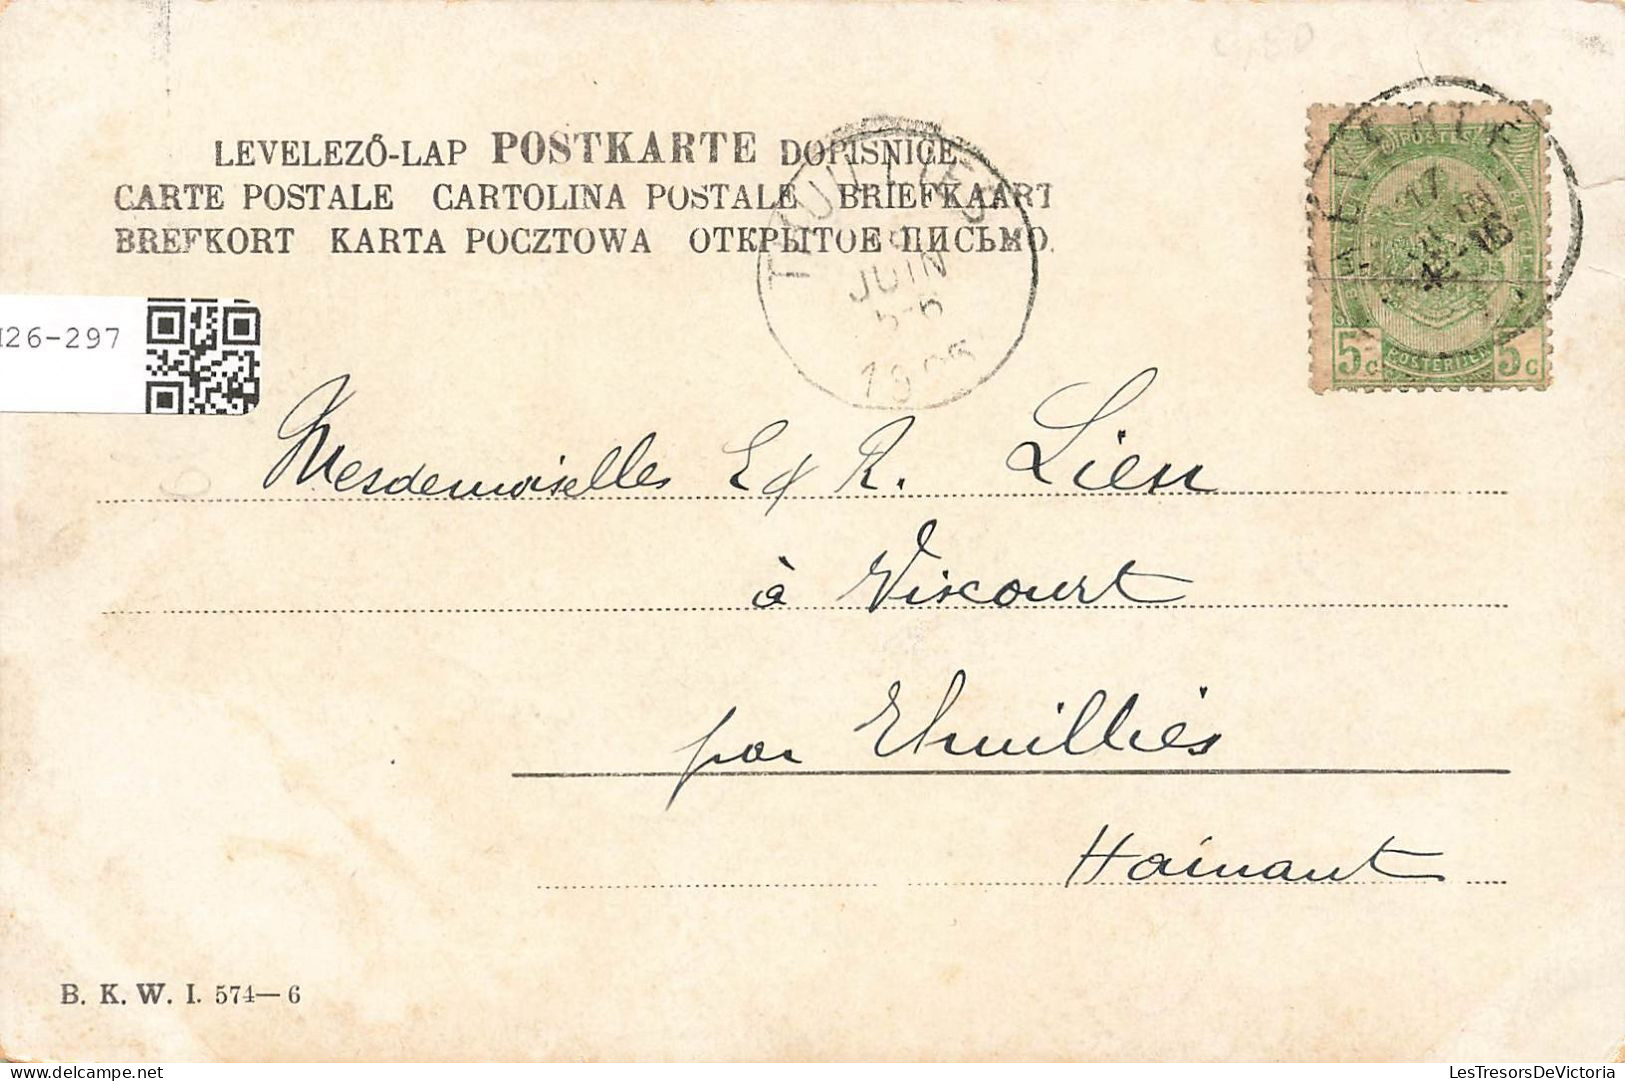 LEVELEZŐ-LAP POSTKARTE DOPISNICE
CARTE POSTALE CARTOLINA POSTALE BRIEFKAART
BREFKORT KARTA POCZTOWA ОТКРЫТОЕ ПИСЬМО.
THUILLIES
JUIN
5-6
5c 5c
POSTERIJEN
26-297
Mesdemoiselles E & R. Lien
à Viscourt
par Thuilliés
Hainaut
B. K. W. I. 574—6
LesTresorsDeVictoria